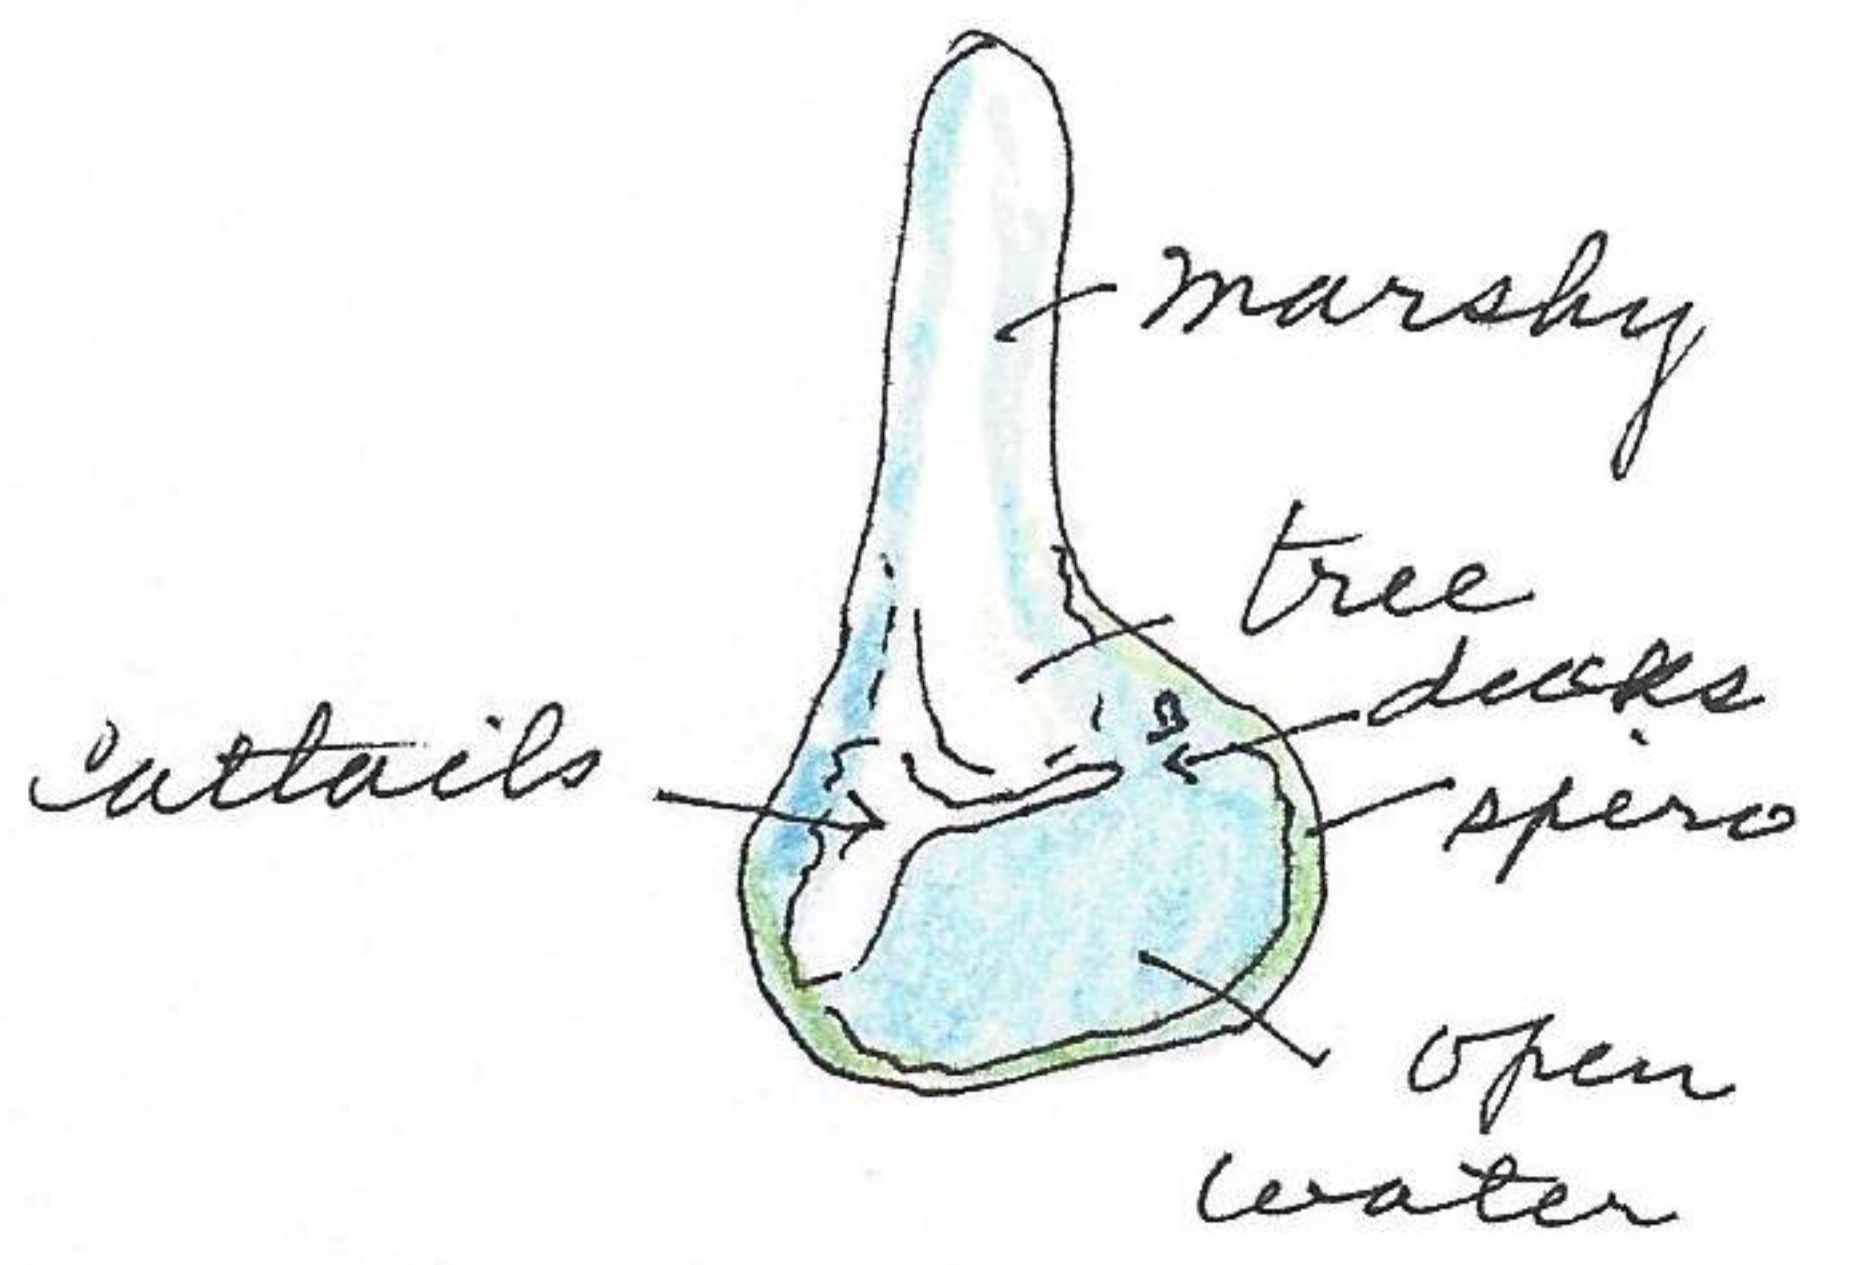 marshy
tree
ducks
cattails
spiro
open
water